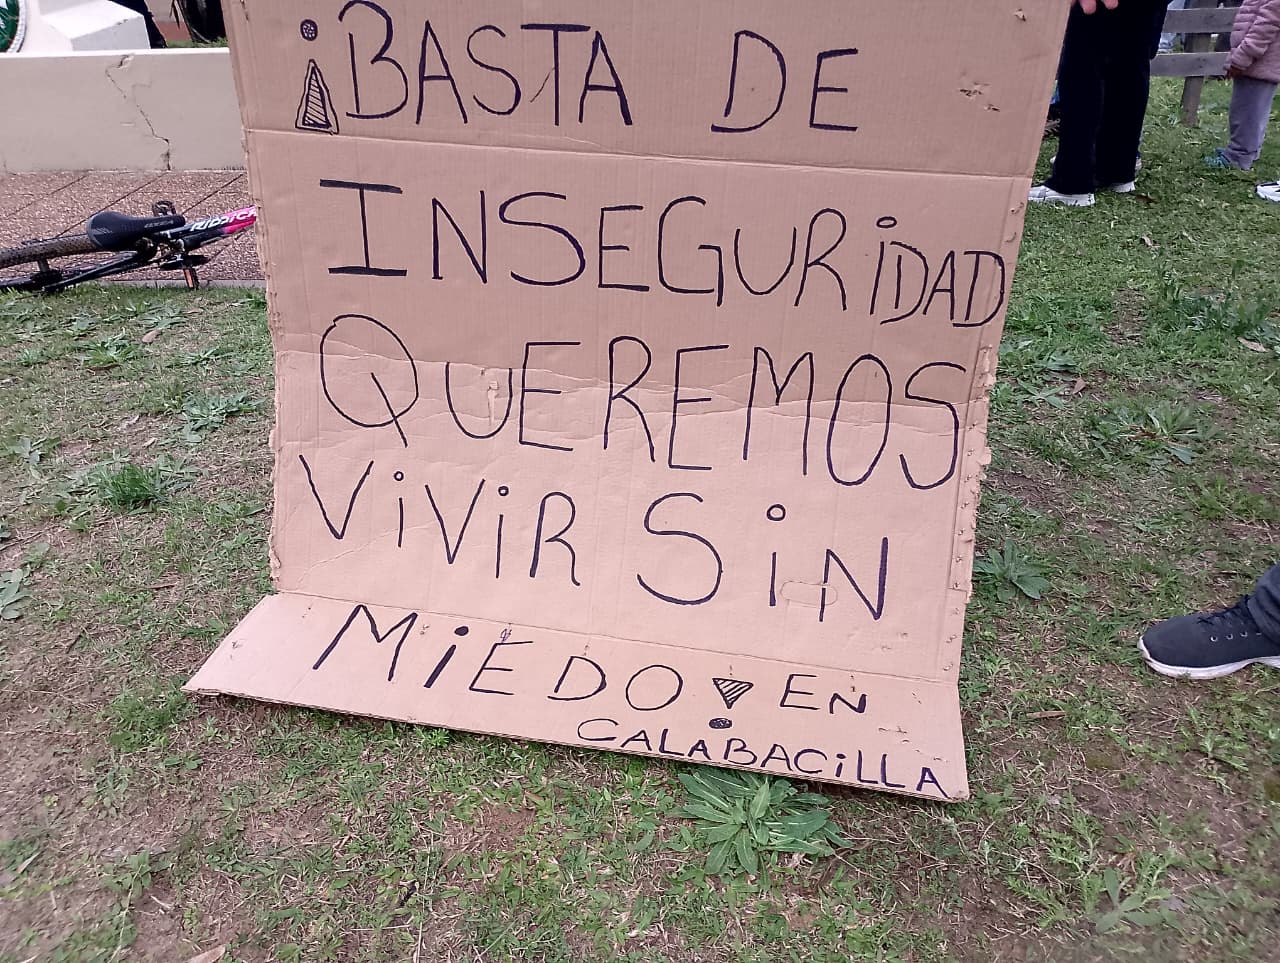 ¡BASTA DE
INSEGURIDAD
QUEREMOS
VIVIR SIN
MIEDO! EN
CALABACILLA
RIDDICK